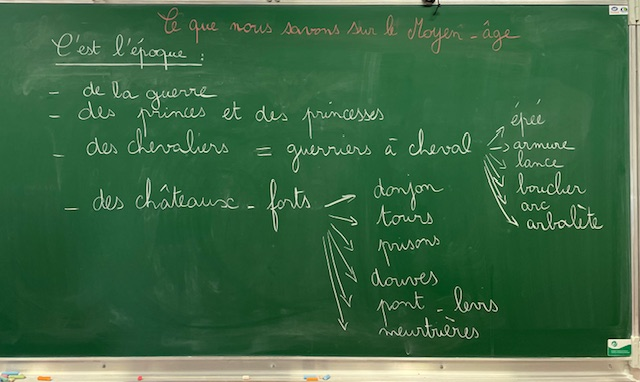 Ce que nous savons sur le Moyen-âge
C'est l'époque :
- de la guerre
- des princes et des princesses
- des chevaliers = guerriers à cheval
épée
armure
lance
boucher
arc
arbalète
- des châteaux-forts
donjon
tours
prisons
douves
pont-levis
meurtrières